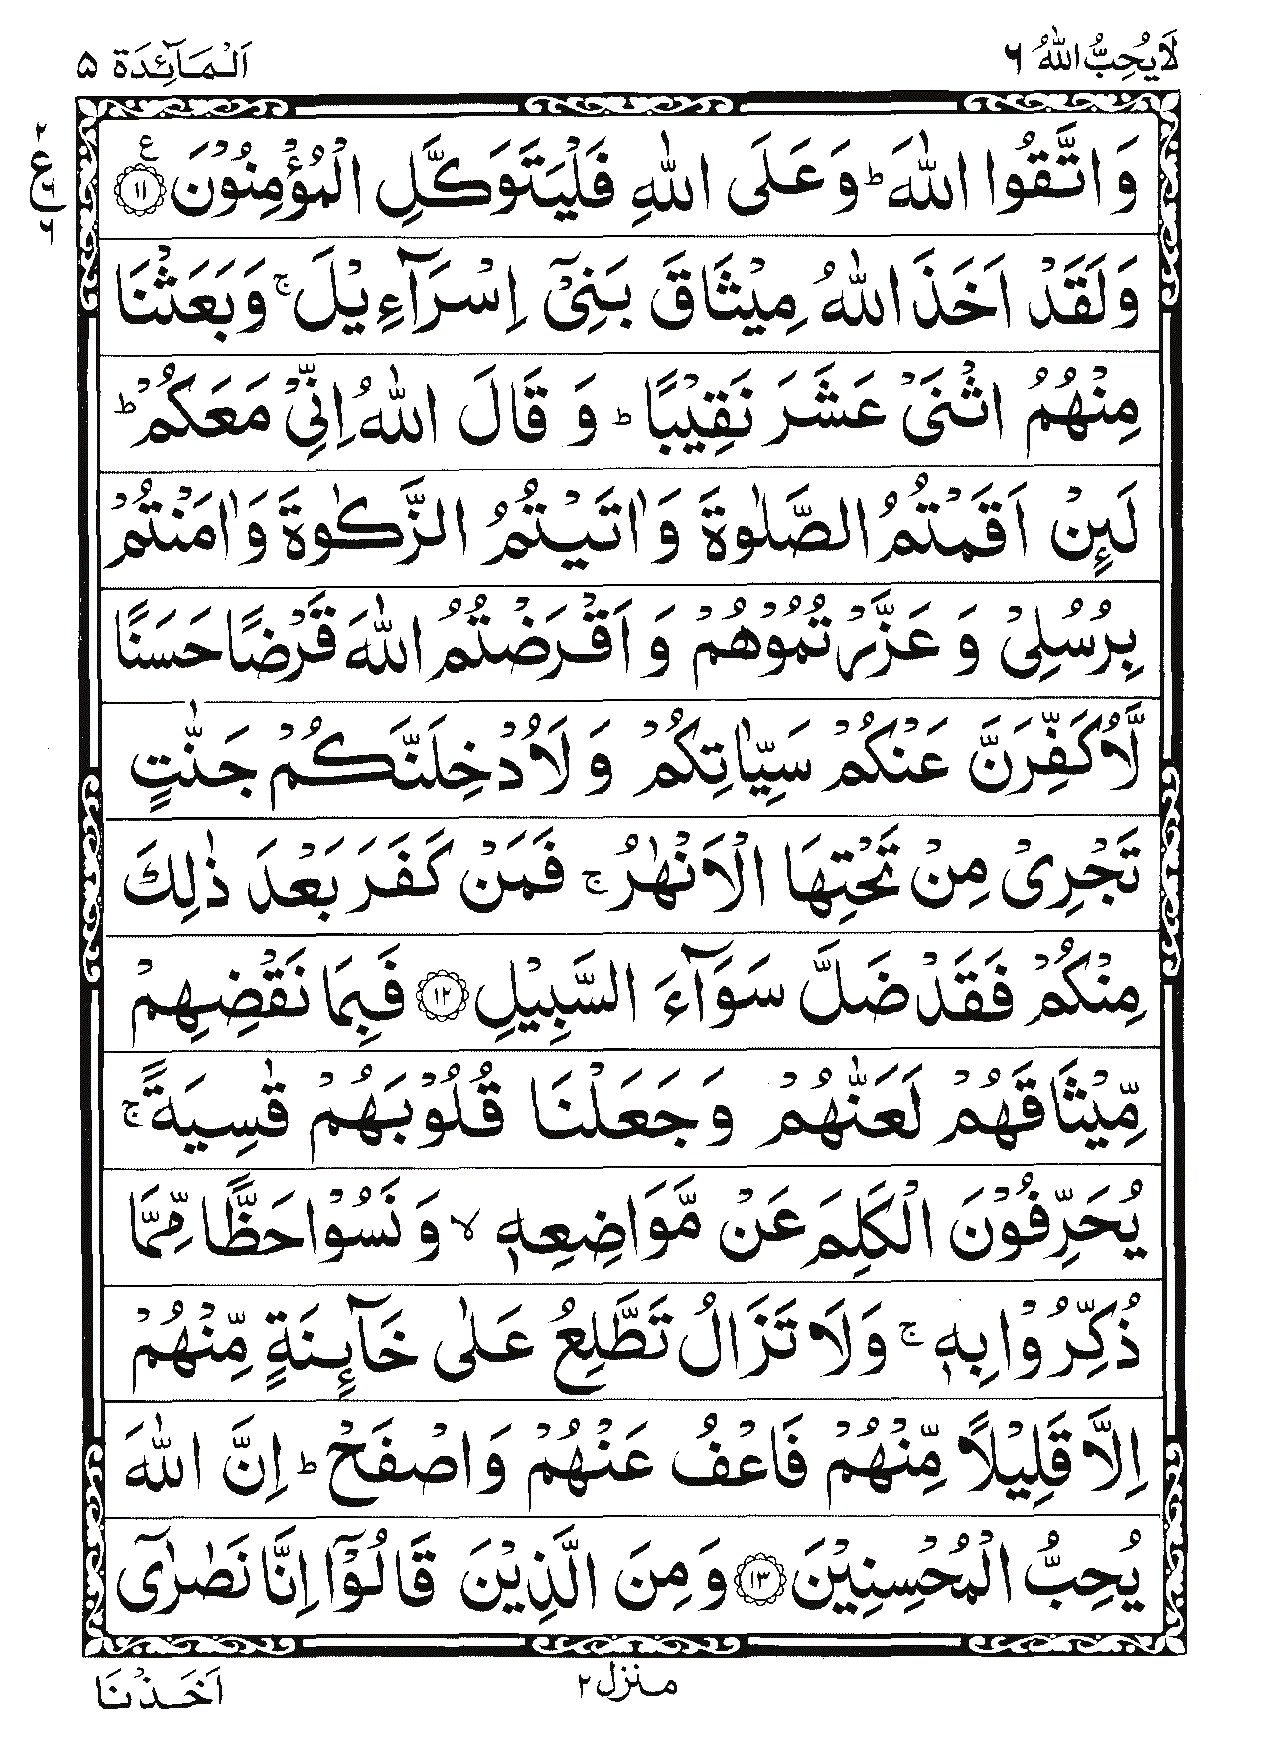 لَا يُحِبُّ اللّٰهُ ٦
اَلْمَآئِدَة ٥
وَ اتَّقُوا اللّٰهَ ؕ وَ عَلَى اللّٰهِ فَلْيَتَوَكَّلِ الْمُؤْمِنُوْنَ ۧ ﴿١١﴾
٢
ع
٦
٦
وَلَقَدْ اَخَذَ اللّٰهُ مِيْثَاقَ بَنِيْٓ اِسْرَآءِيْلَ ۚ وَبَعَثْنَا
مِنْهُمُ اثْنَيْ عَشَرَ نَقِيْبًا ؕ وَ قَالَ اللّٰهُ اِنِّيْ مَعَكُمْ ؕ
لَىِٕنْ اَقَمْتُمُ الصَّلٰوةَ وَ اٰتَيْتُمُ الزَّكٰوةَ وَ اٰمَنْتُمْ
بِرُسُلِيْ وَ عَزَّرْتُمُوْهُمْ وَ اَقْرَضْتُمُ اللّٰهَ قَرْضًا حَسَنًا
لَّاُكَفِّرَنَّ عَنْكُمْ سَيِّاٰتِكُمْ وَ لَاُدْخِلَنَّكُمْ جَنّٰتٍ
تَجْرِيْ مِنْ تَحْتِهَا الْاَنْهٰرُ ۚ فَمَنْ كَفَرَ بَعْدَ ذٰلِكَ
مِنْكُمْ فَقَدْ ضَلَّ سَوَآءَ السَّبِيْلِ ﴿١٢﴾ فَبِمَا نَقْضِهِمْ
مِّيْثَاقَهُمْ لَعَنّٰهُمْ وَ جَعَلْنَا قُلُوْبَهُمْ قٰسِيَةً ۚ
يُحَرِّفُوْنَ الْكَلِمَ عَنْ مَّوَاضِعِهٖ ۙ وَ نَسُوْا حَظًّا مِّمَّا
ذُكِّرُوْا بِهٖ ۚ وَلَا تَزَالُ تَطَّلِعُ عَلٰى خَآىِٕنَةٍ مِّنْهُمْ
اِلَّا قَلِيْلًا مِّنْهُمْ فَاعْفُ عَنْهُمْ وَاصْفَحْ ؕ اِنَّ اللّٰهَ
يُحِبُّ الْمُحْسِنِيْنَ ﴿١٣﴾ وَ مِنَ الَّذِيْنَ قَالُوْٓا اِنَّا نَصٰرٰٓى
منزل ٢
اَخَذْنَا